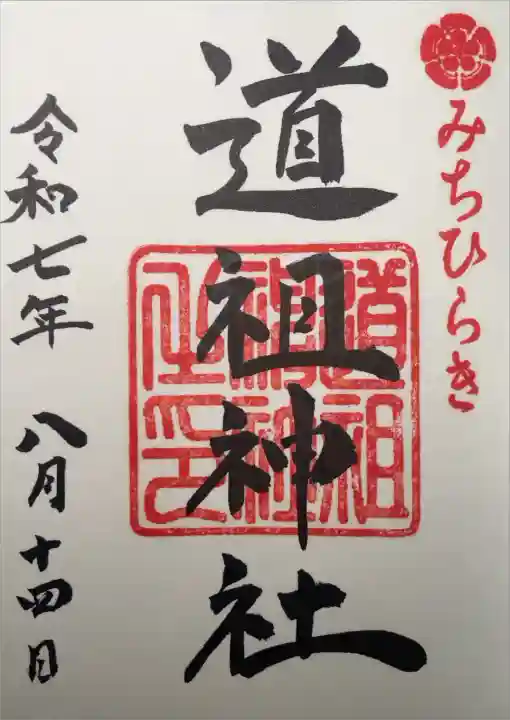 みちひらき
道祖神社
道祖神社之印
令和七年 八月十四日